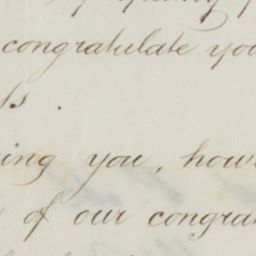 congratulate you
ss .
ing you, how
of our congra